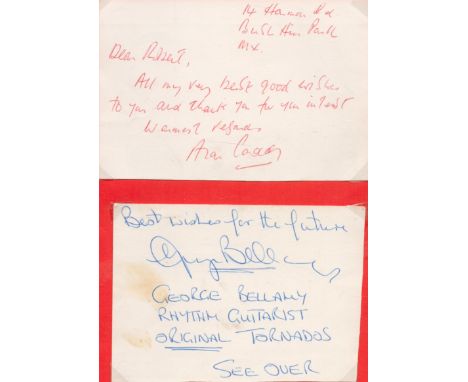 Bush Hill Park
Mx.
Dear Robert,
All my very best good wishes
to you and thank you for your interest
Warmest regards
Alan Caddy
Best wishes for the future
George Bellamy
GEORGE BELLAMY
RHYTHM GUITARIST
ORIGINAL TORNADOS
SEE OVER